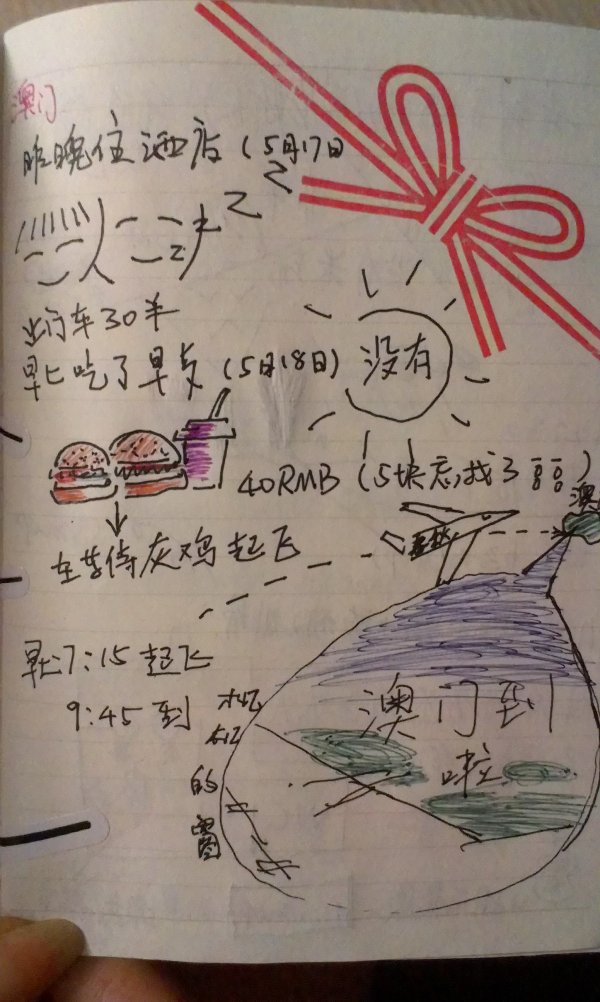 澳门
昨晚住酒店（5月17日
z z z
出行车30羊
早上吃了早歺（5月18日）
没有
40RMB（5块忘找了
起飞
早上7:15起飞
9:45到
澳门到
啦
的
窗